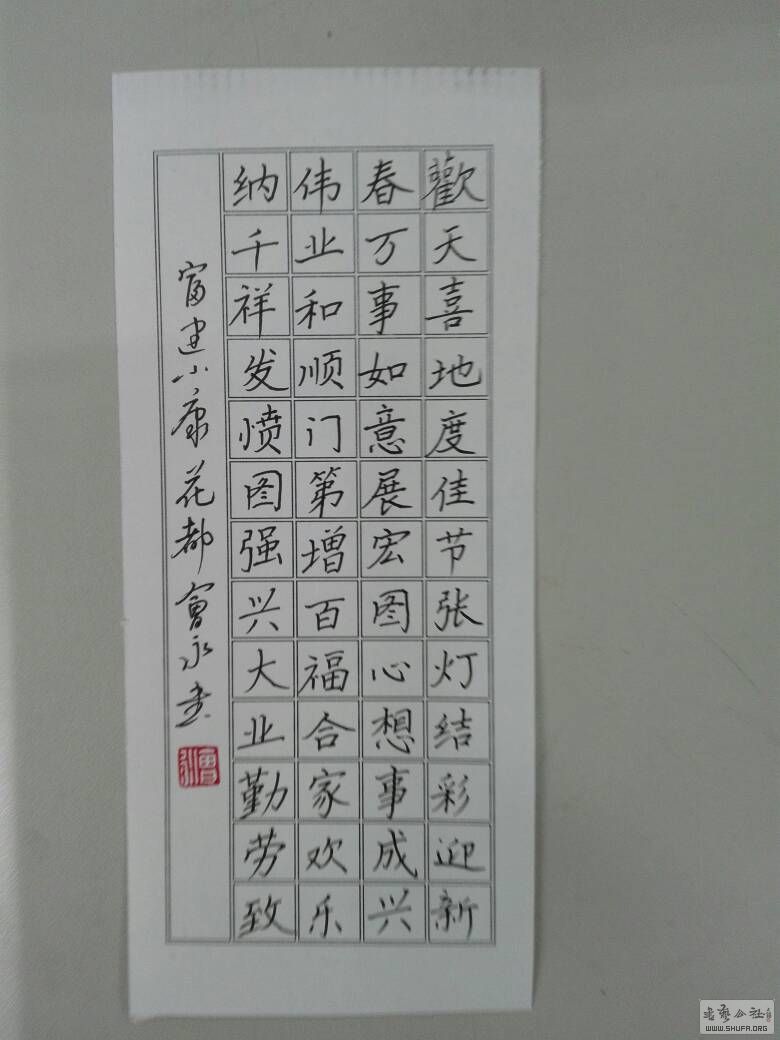 歡天喜地度佳节张灯结彩迎新
春万事如意展宏图心想事成兴
伟业和顺门第增百福合家欢乐
纳千祥发愤图强兴大业勤劳致
富建小康花都曾永书
WWW.SHUFA.ORG